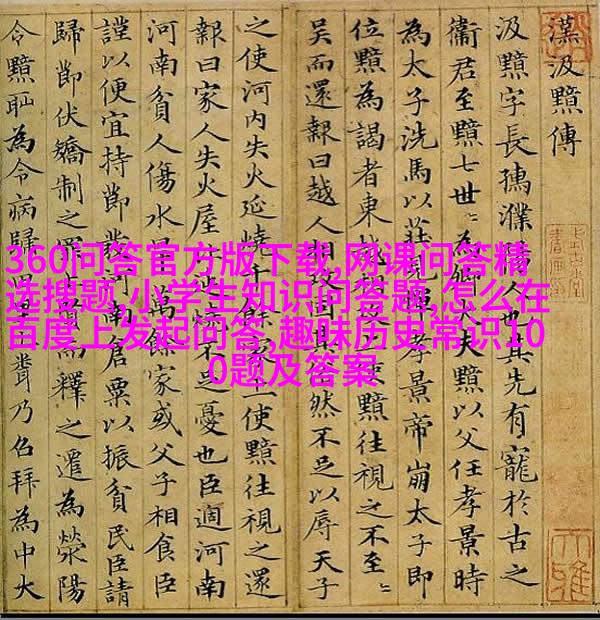 360问答官方版下载,网课问答精
选搜题,小学生知识问答题,怎么在
百度上发起问答,趣味历史常识10
0题及答案
漢汲黯傳
汲黯字長孺濮人也其先有寵於古之
衞君至黯七世〻為大夫黯以父任孝景時
為太子洗馬以莊見孝景帝崩太子即
位黯為謁者東使黯往視之不至〻
吳而還報曰越人固然不足以辱天子
之使河內失火延燒千餘家上使黯往視之還
報曰家人失火屋不足憂也臣適河南
河南貧人傷水萬餘家或父子相食臣
謹以便宜持節發河南倉粟以振貧民臣請
歸節伏矯制之罪而釋之遷為滎陽
令黯恥為令病歸乃召拜為中大